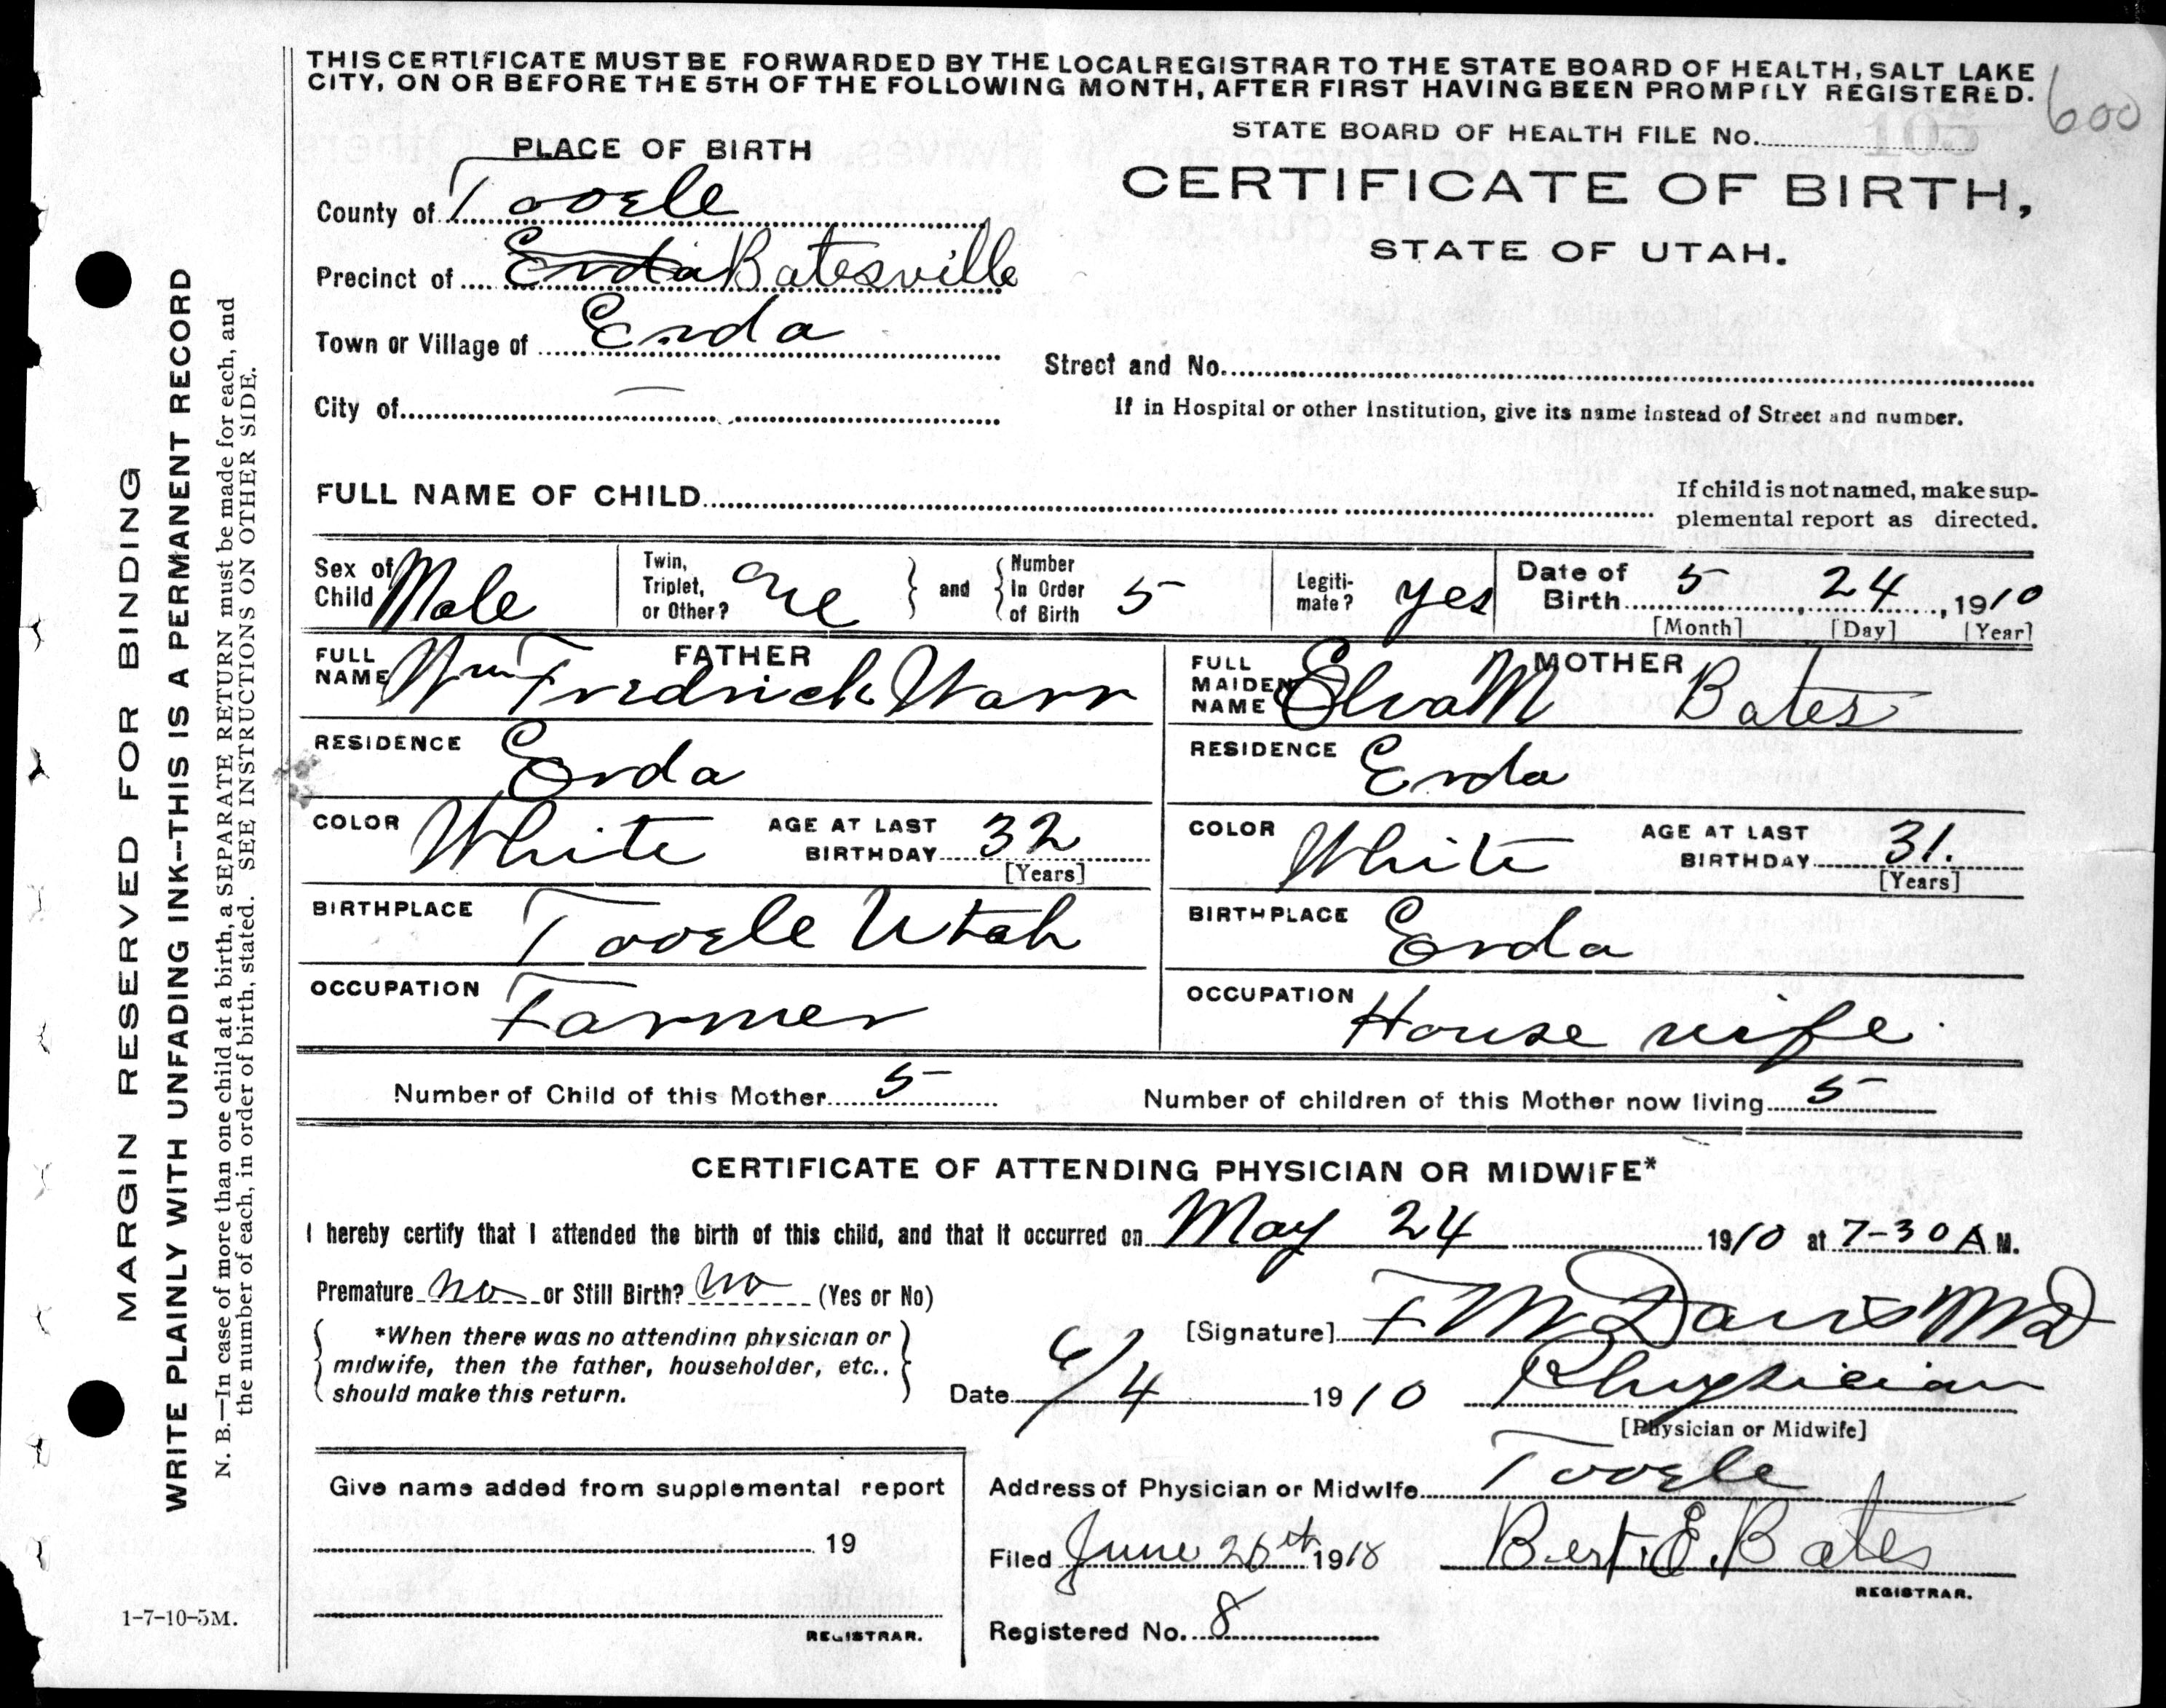 THIS CERTIFICATE MUST BE FORWARDED BY THE LOCAL REGISTRAR TO THE STATE BOARD OF HEALTH, SALT LAKE
CITY, ON OR BEFORE THE 5TH OF THE FOLLOWING MONTH, AFTER FIRST HAVING BEEN PROMPTLY REGISTERED.
600
STATE BOARD OF HEALTH FILE No. 105
PLACE OF BIRTH
CERTIFICATE OF BIRTH,
STATE OF UTAH.
County of Tooele
Precinct of Erda Batesville
Town or Village of Erda
Street and No.
City of —
If in Hospital or other Institution, give its name instead of Street and number.
FULL NAME OF CHILD
If child is not named, make sup-
plemental report as directed.
Sex of Child Male
Twin, Triplet, or Other? One
and Number In Order of Birth 5
Legiti-mate? yes
Date of Birth 5, 24, 1910
[Month] [Day] [Year]
FATHER
FULL NAME Wm Fredrick Warr
MOTHER
FULL MAIDEN NAME Elva M Bates
RESIDENCE Erda
RESIDENCE Erda
COLOR White AGE AT LAST BIRTHDAY 32 [Years]
COLOR White AGE AT LAST BIRTHDAY 31. [Years]
BIRTHPLACE Tooele Utah
BIRTHPLACE Erda
OCCUPATION Farmer
OCCUPATION House wife
Number of Child of this Mother 5
Number of children of this Mother now living 5
CERTIFICATE OF ATTENDING PHYSICIAN OR MIDWIFE*
I hereby certify that I attended the birth of this child, and that it occurred on May 24 1910 at 7-30 A M.
Premature no or Still Birth? no (Yes or No)
*When there was no attending physician or
midwife, then the father, householder, etc.,
should make this return.
[Signature] F M Davis MD
Date 6/4 1910 Physician
[Physician or Midwife]
Give name added from supplemental report
19
REGISTRAR.
Address of Physician or Midwife Tooele
Filed June 1910 Bert. E. Bates
REGISTRAR.
Registered No. 8
1-7-10-5M.
MARGIN RESERVED FOR BINDING
WRITE PLAINLY WITH UNFADING INK--THIS IS A PERMANENT RECORD
N. B.—In case of more than one child at a birth, a SEPARATE RETURN must be made for each, and
the number of each, in order of birth, stated. SEE INSTRUCTIONS ON OTHER SIDE.